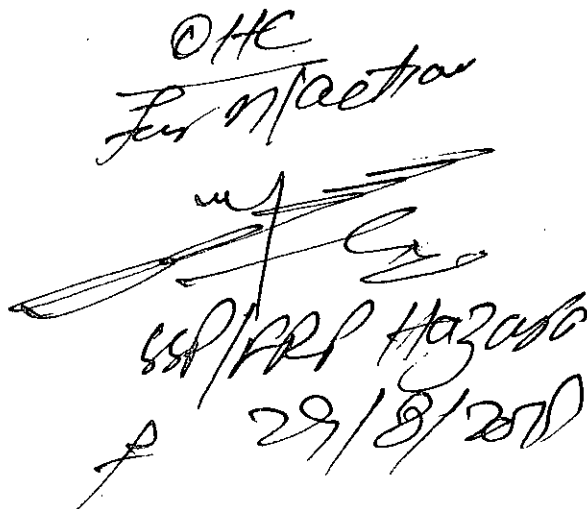 OHC
For n/action
SSP/FRP Hazara
29/8/2018